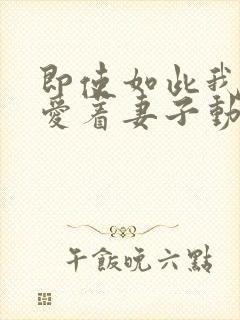 即使如此我
愛着妻子動
午飯晚六點